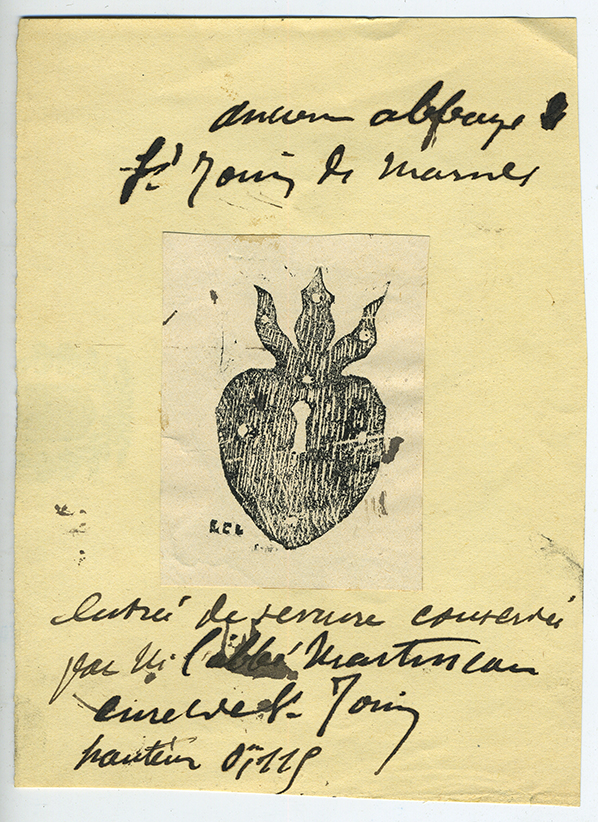 ancienne abbaye
St Jouin de Marnes
entrée de serrure conservée
par M. l'abbé Martineau
curé de St Jouin
hauteur 0m,115